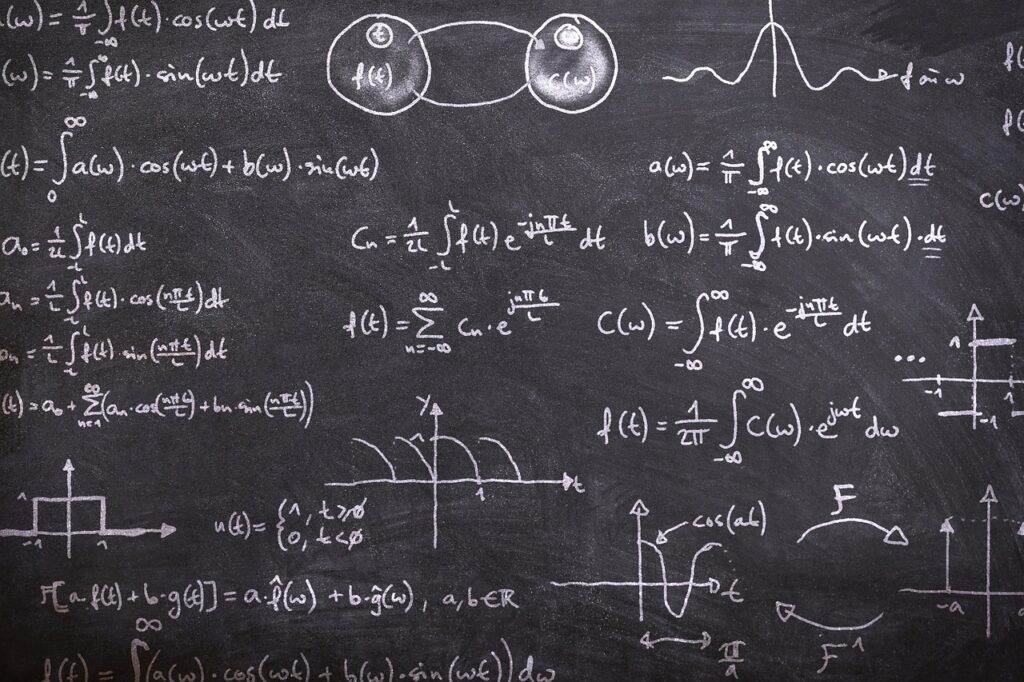 (ω) = 1/π ∫_{-∞} f(t)·cos(ωt) dt
(ω) = 1/π ∫_{-∞}^{∞} f(t)·sin(ωt) dt
t
f(t)
C(ω)
f ω
f(
f(
(t) = ∫_0^∞ a(ω)·cos(ωt) + b(ω)·sin(ωt)
a(ω) = 1/π ∫_{-∞}^{∞} f(t)·cos(ωt) dt
C(ω)
a₀ = 1/2L ∫_{-L}^{L} f(t) dt
Cn = 1/2L ∫_{-L}^{L} f(t) e^{-jnπt/L} dt
b(ω) = 1/π ∫_{-∞}^{∞} f(t)·sin(ωt)·dt
an = 1/L ∫_{-L}^{L} f(t)·cos(nπt/L) dt
f(t) = ∑_{n=-∞}^{∞} Cn·e^{jnπt/L}
C(ω) = ∫_{-∞}^{∞} f(t)·e^{-jnπt/L} dt
bn = 1/L ∫_{-L}^{L} f(t)·sin(nπt/L) dt
... 1 -1 1 -1
(t) = a₀ + ∑_{n=1}^{∞} (an·cos(nπt/L) + bn·sin(nπt/L))
f(t) = 1/2π ∫_{-∞}^{∞} C(ω)·e^{jωt} dω
y 1 1 t
1 -1 1
u(t) = {1, t≥0
{0, t<0
cos(at)
t
π/a
F
F⁻¹
-a
F[a·f(t) + b·g(t)] = a·f̂(ω) + b·ĝ(ω), a,b∈ℝ
f(t) = ∫^∞ (a(ω)·cos(ωt) + b(ω)·sin(ωt)) dω